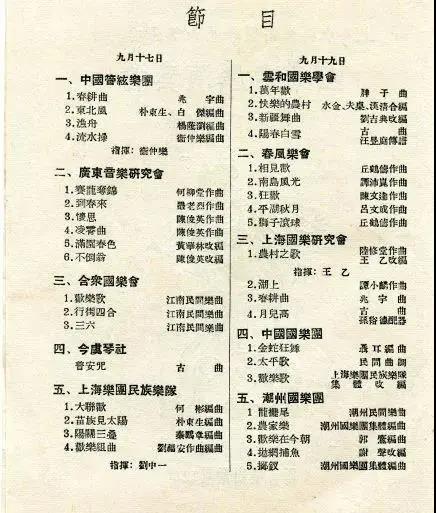 節目
九月十七日
一、中國管絃樂團
1.春耕曲 兆宇曲
2.東北風 朴東生、白傑編曲
3.漁舟 楊蔭瀏編曲
4.流水操 衞仲樂編曲
指揮：衞仲樂
二、廣東音樂研究會
1.賽龍奪錦 何柳堂作曲
2.到春來 嚴老烈作曲
3.懷思 陳俊英作曲
4.凌霄曲 陳俊英作曲
5.滿園春色 黃華林改編
6.不倒翁 陳俊英改編
三、合衆國樂會
1.歡樂歌 江南民間樂曲
2.行街四合 江南民間樂曲
3.三六 江南民間樂曲
四、今虞琴社
普安咒 古曲
五、上海樂團民族樂隊
1.大聯歡 何彬編曲
2.苗族見太陽 朴東生編曲
3.陽關三叠 秦鵬章編曲
4.歡樂組曲 劉福安作曲編曲
指揮：劉中一
九月十九日
一、雲和國樂學會
1.萬年歡 子曲
2.快樂的農村 水金、夫臺、漢清合編
3.新疆舞曲 劉古典改編
4.陽春白雪 古曲
汪昱庭傳譜
二、春風樂會
1.相見歡 丘鶴儔作曲
2.南島風光 譚沛鋆作曲
3.狂歡 陳文達作曲
4.平湖秋月 呂文成作曲
5.獅子滾球 丘鶴儔作曲
三、上海國樂研究會
1.農村之歌 陸修堂作曲
王乙改編
指揮：王乙
2.湖上 譚小麟作曲
3.春耕曲 兆宇曲
4.月兒高 古曲
孫裕德配器
四、中國國樂團
1.金蛇狂舞 聶耳編曲
2.太平歌 民間曲調
3.歡樂歌 上海樂團民族樂隊
集體改編
五、潮州國樂團
1.龍擺尾 潮州民間樂曲
2.農家樂 潮州國樂團集體編曲
3.歡樂在今朝 郭鷹編曲
4.拋網捕魚 謝聲改編
5.擲釵 潮州國樂團集體編曲